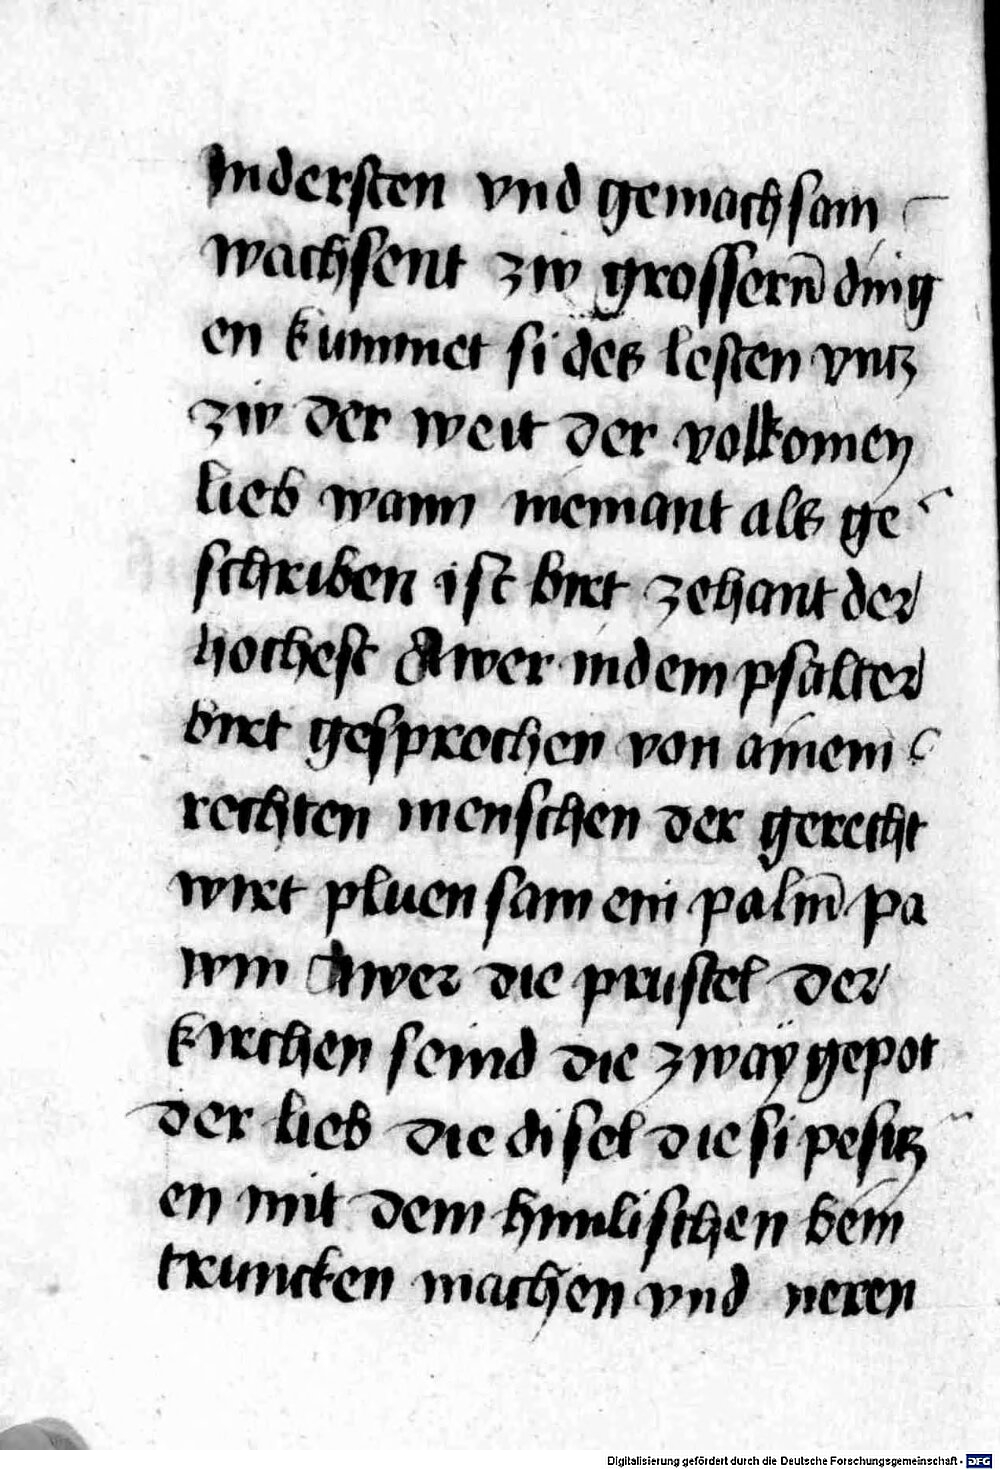 Mndersten vnd gemachsam
wachsent zw grossern̄ ding
en kummet si des lesten vntz
zw der weit der volkomen
lieb wann niemant als ge
schriben ist birt zehant der
hochest Awer in dem psalter
birt gesprochen von ainem
rechten menschen der gerecht
wirt pluen sam ein palm̄ pa
wm Awer die prustel der
kirchen seind die zway gepot
der lieb die di sel die si pesitz
en mit dem himlischen bein
truncken machen vnd neren
Digitalisierung gefördert durch die Deutsche Forschungsgemeinschaft - DFG